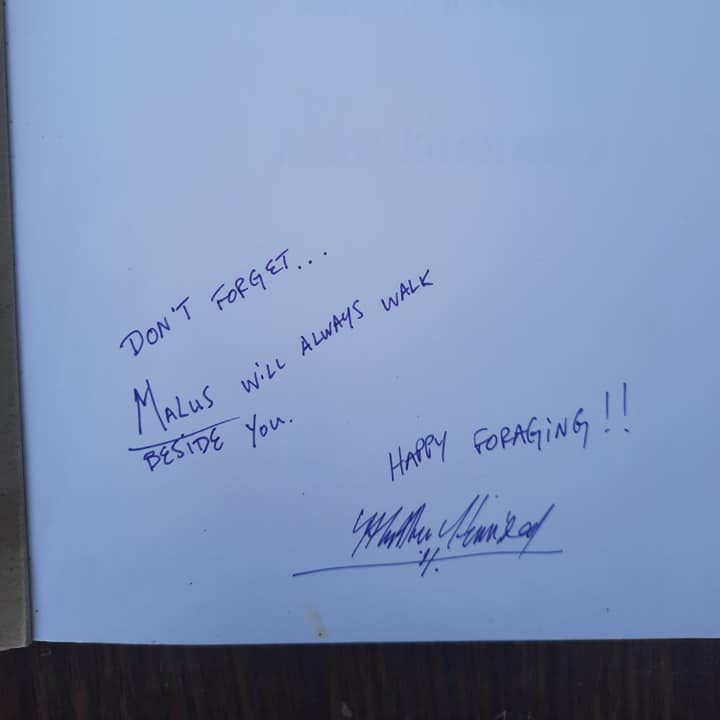 DON'T FORGET...
MALUS WILL ALWAYS WALK
BESIDE YOU.
HAPPY FORAGING!!